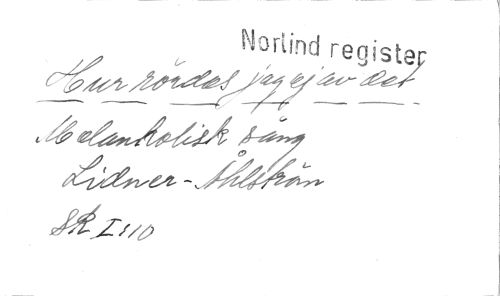 Norlind register
Hur rördes jag ej av det
Melankolisk sång
Lidner-Åhlström
SR I:10